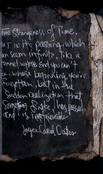 The Strangeness of Time.
Not in its passing, which
can seem infinite, like a
tunnel whose end you can't
see, whose beginning you've
forgotten, but in the
sudden realization that
something finite, has passed,
and is irretrievable.
Joyce Carol Oates